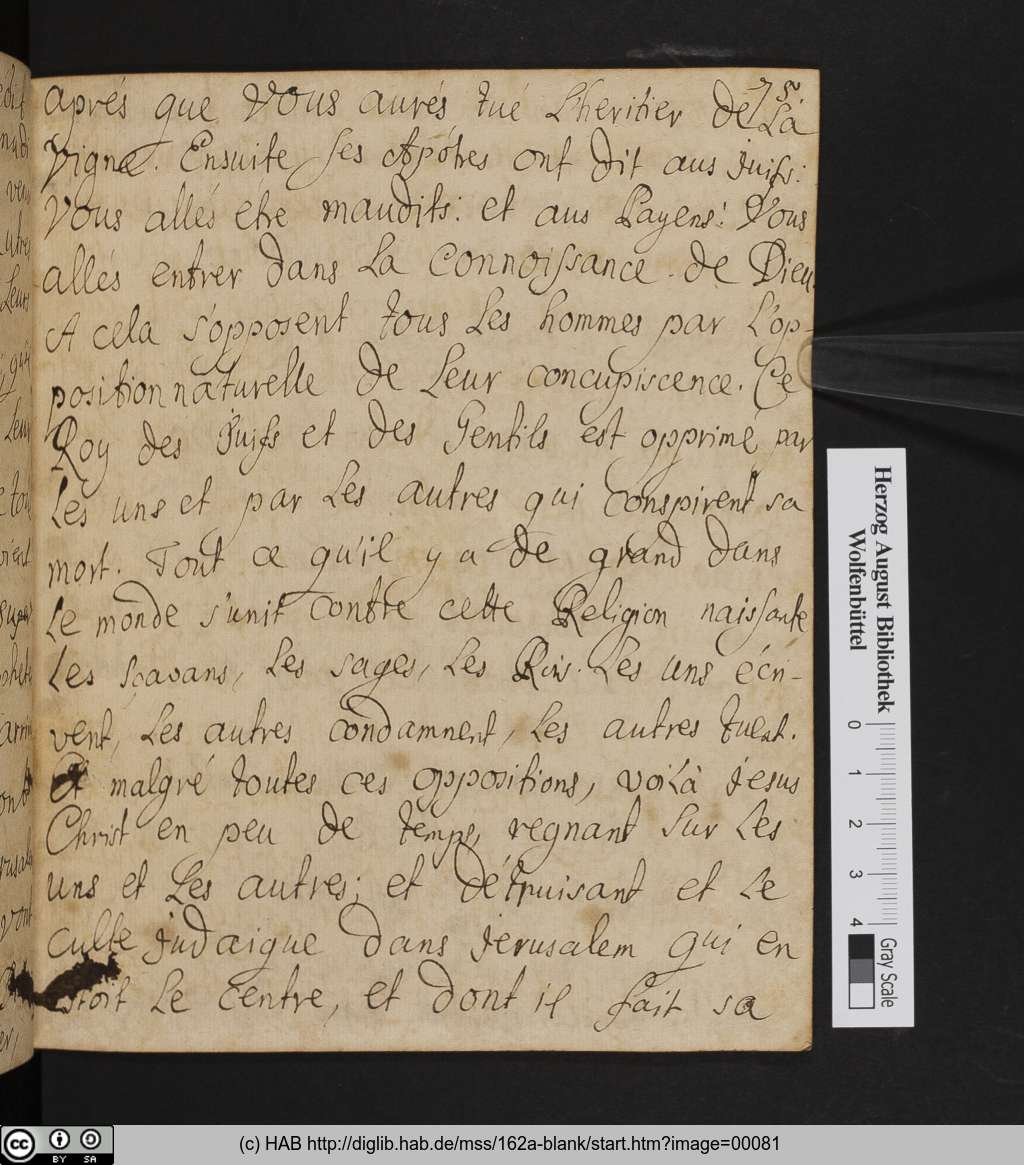 75.
aprés que Vous aurés tué L'heritier De La
Vigne. Ensuite ses Apótres ont Dit aus juifs:
Vous allés étre maudits: et aus Payens: Vous
allés entrer dans La Connoissance de Dieu.
A cela s'opposent tous Les hommes par L'op-
position naturelle De Leur concupiscence. Ce
Roy des Juifs et des Gentils est opprimé par
Les uns et par Les autres qui Conspirent sa
mort. Tout ce qu'il y a de grand dans
Le monde s'unit contre cette Religion naissante
Les sçavans, Les sages, Les Rois. Les uns écri-
vent, Les autres condamnent, Les autres tuent.
Et malgré toutes ces oppositions, voiLà jesus
Christ en peu de temps, regnant Sur Les
uns et Les autres; et détruisant et Le
culte judaique dans jerusalem qui en
estoit Le Centre, et dont il fait sa
Herzog August Bibliothek
Wolfenbüttel
0 1 2 3 4
Gray Scale
cc BY SA
(c) HAB http://diglib.hab.de/mss/162a-blank/start.htm?image=00081